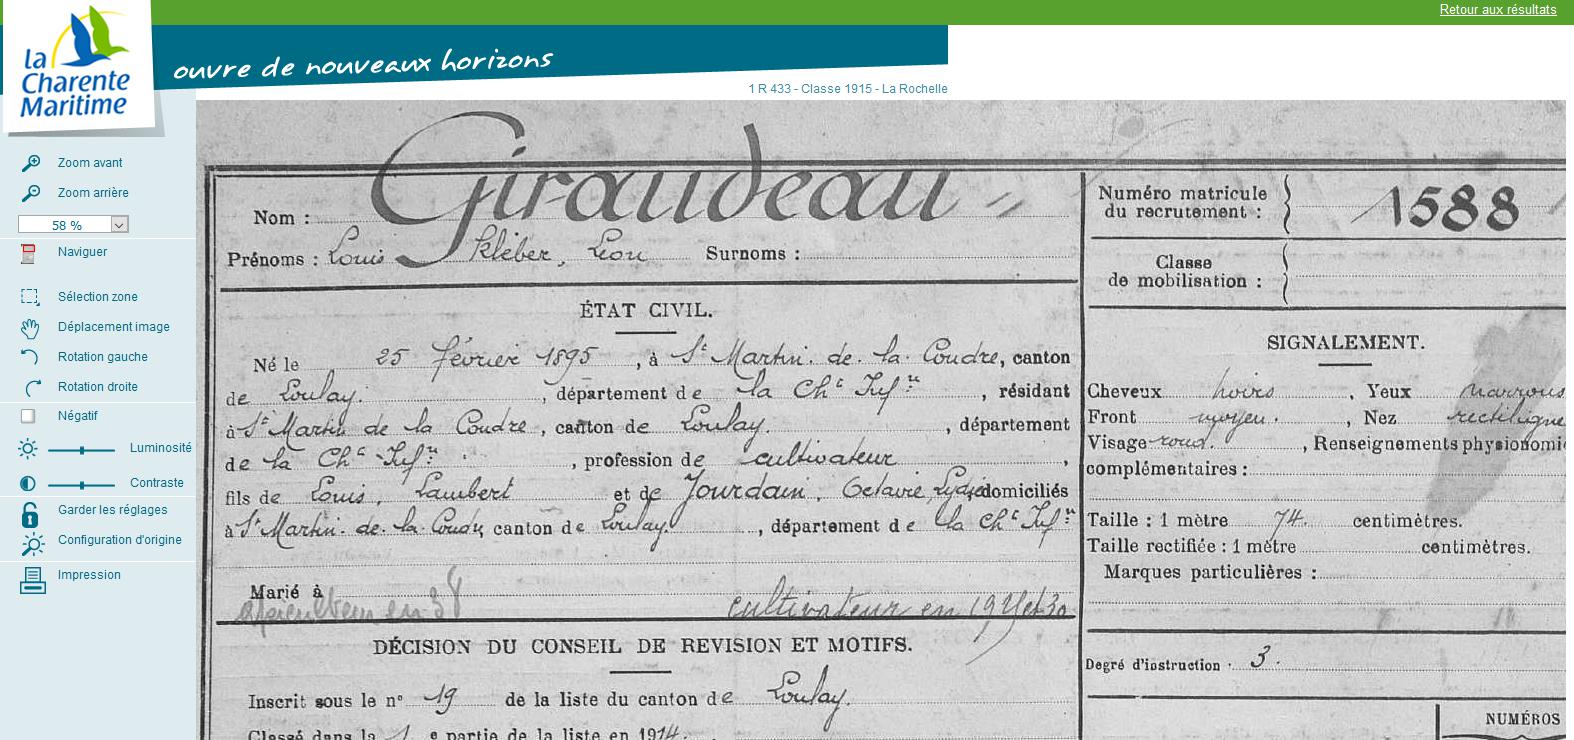 Retour aux résultats
la
Charente
Maritime
ouvre de nouveaux horizons
1 R 433 - Classe 1915 - La Rochelle
Zoom avant
Zoom arrière
58 %
Naviguer
Sélection zone
Déplacement image
Rotation gauche
Rotation droite
Négatif
Luminosité
Contraste
Garder les réglages
Configuration d'origine
Impression
Nom : Giraudeau
Prénoms : Louis Kléber, Léon Surnoms :
ÉTAT CIVIL.
Né le 25 février 1895, à St Martin. de. la. Coudre, canton
de Loulay. , département de la Chte Infre , résidant
à St Martin de la Coudre, canton de Loulay. , département
de la Chte Infre , profession de cultivateur ,
fils de Louis, Lambert et de Jourdain, Octavie, Lydie domiciliés
à St Martin. de. la. Coudre, canton de Loulay. , département de la Chte Infre
Marié à
en 38 cultivateur en 1921 et 30
DÉCISION DU CONSEIL DE REVISION ET MOTIFS.
Inscrit sous le no 19 de la liste du canton de Loulay.
Classé dans la 1 e partie de la liste en 1914.
Numéro matricule
du recrutement : 1588
Classe
de mobilisation :
SIGNALEMENT.
Cheveux noirs , Yeux marrons
Front moyen. , Nez rectiligne
Visage rond. , Renseignements physionomi
complémentaires :
Taille : 1 mètre 74. centimètres.
Taille rectifiée : 1 mètre centimètres.
Marques particulières :
Degré d'instruction . 3.
NUMÉROS